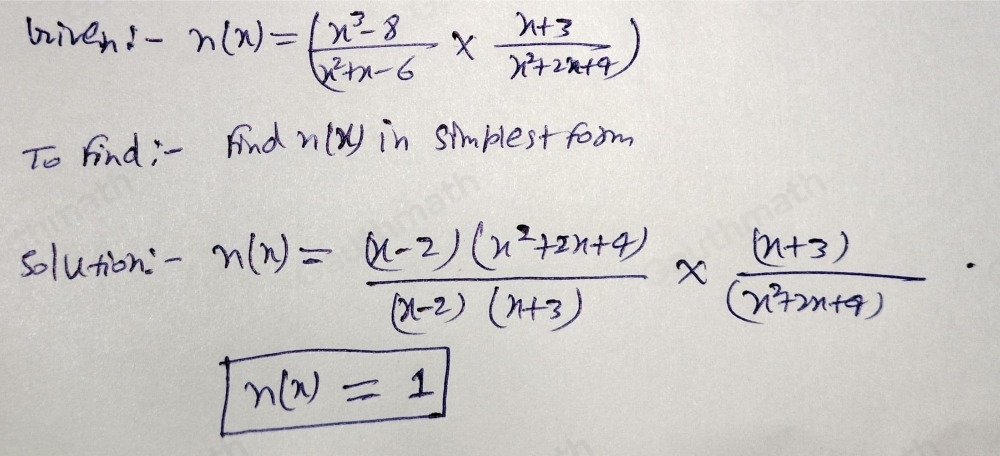 Given:- n(x) = (x³-8 / x²+x-6 × x+3 / x²+2x+4)
To find:- find n(x) in simplest form
Solution:- n(x) = (x-2) (x²+2x+4) / (x-2) (x+3) × (x+3) / (x²+2x+4) .
n(x) = 1